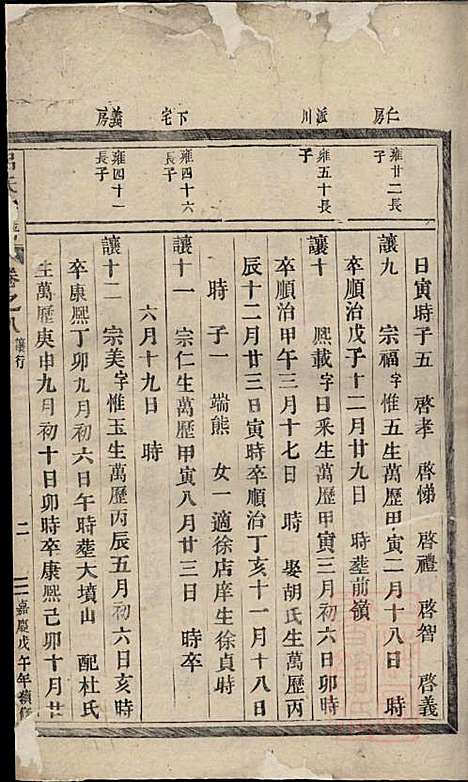 仁房
派川
下宅
義房
雍廿二長子
雍五十長子
雍四十六長子
雍四十一長子
日寅時子五 啓孝 啓悌 啓禮 啓智 啓義
讓九 宗福字惟五生萬歷甲寅二月十八日 時
卒順治戊子十二月廿九日 時塟前嶺
讓十 熙載字曰釆生萬歷甲寅三月初六日卯時
卒順治甲午三月十七日 時 娶胡氏生萬歷丙
辰十二月廿三日寅時卒順治丁亥十一月十八日
時 子一 端熊 女一適徐店庠生徐貞時
讓十一 宗仁生萬歷甲寅八月廿三日 時卒
六月十九日 時
讓十二 宗美字惟玉生萬歷丙辰五月初六日亥時
卒康熙丁卯九月初六日午時塟大墳山 配杜氏
生萬歷庚申九月初十日卯時卒康熙己卯十月廿
卷之八 讓行 二 嘉慶戊午年續修